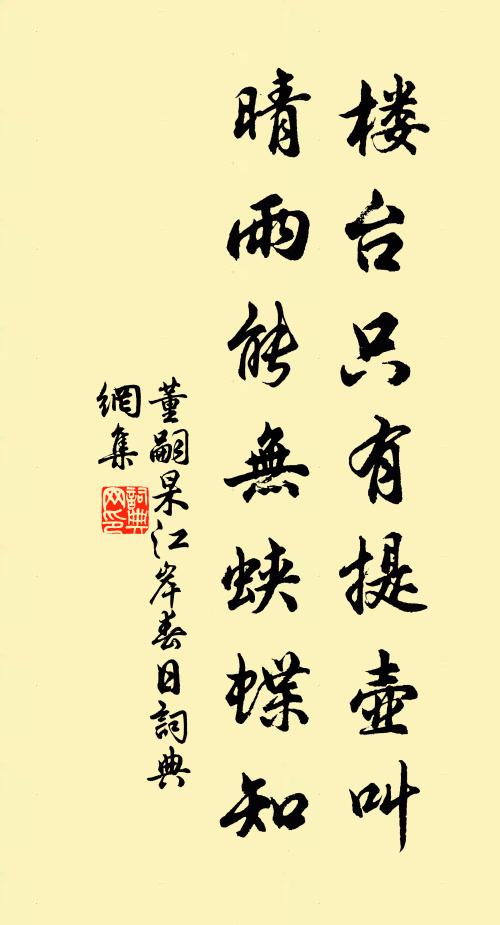 楼台只有提壶叫
晴雨能無蛱蝶知
董嗣杲江岸春日詞典
網集
詞典网印